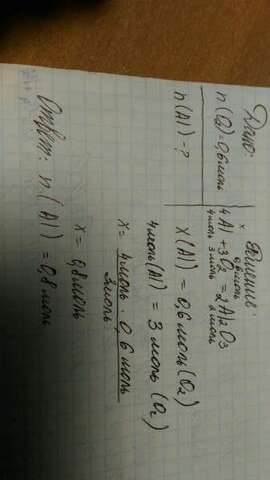 Дано:
n(O₂)=0,6 моль
n(Al)-?
Решение:
x 0,6 моль
4Al+3O₂=2Al₂O₃
4 моль 3 моль
x(Al) = 0,6 моль(O₂)
4 моль(Al) = 3 моль(O₂)
x= 4 моль · 0,6 моль
3 моль
x= 0,8 моль
Ответ: n(Al) = 0,8 моль